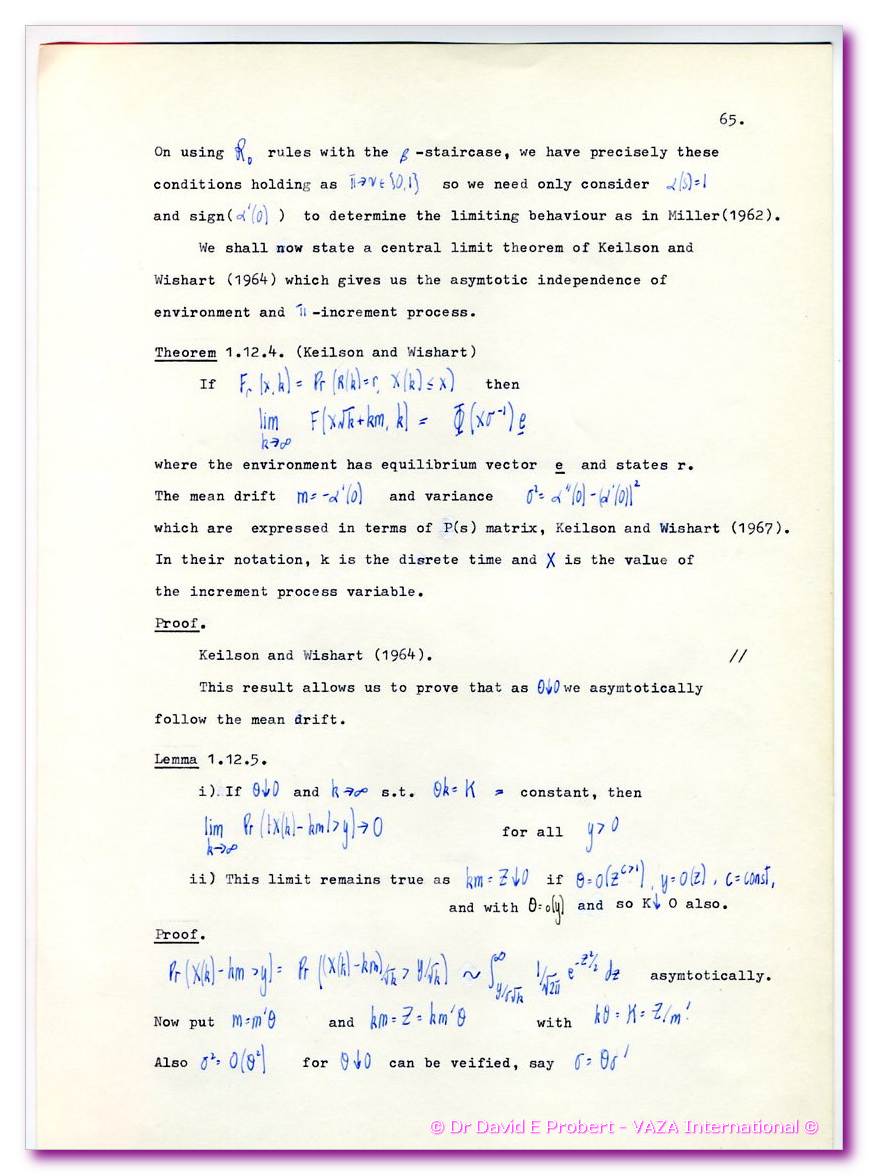 65.
On using R₀ rules with the β-staircase, we have precisely these
conditions holding as π→ν∈{0,1} so we need only consider α(s)=1
and sign(α'(0) ) to determine the limiting behaviour as in Miller(1962).
We shall now state a central limit theorem of Keilson and
Wishart (1964) which gives us the asymtotic independence of
environment and π-increment process.
Theorem 1.12.4. (Keilson and Wishart)
If Fᵣ(x,k) = Pr(R(k)=r, X(k)≤x) then
lim k→∞ F(x√k+km, k) = Φ(xσ⁻¹)e
where the environment has equilibrium vector e and states r.
The mean drift m=-α'(0) and variance σ²= α''(0)-(α'(0))²
which are expressed in terms of P(s) matrix, Keilson and Wishart (1967).
In their notation, k is the disrete time and X is the value of
the increment process variable.
Proof.
Keilson and Wishart (1964). //
This result allows us to prove that as θ↓0 we asymtotically
follow the mean drift.
Lemma 1.12.5.
i). If θ↓0 and k→∞ s.t. θk=K = constant, then
lim k→∞ Pr(|X(k)-km|>y)→0 for all y>0
ii) This limit remains true as km=Z↓0 if θ=o(Z^{c>1}), y=O(Z), c=const,
and with θ=o(y) and so K↓0 also.
Proof.
Pr(X(k)-km>y)= Pr((X(k)-km)/√k > y/√k) ~ ∫_{y/σ√k}^∞ 1/√2π e^{-z²/2} dz asymtotically.
Now put m=m'θ and km=Z=km'θ with kθ=K=Z/m'
Also σ²=O(θ²) for θ↓0 can be veified, say σ=θσ'
© Dr David E Probert - VAZA International ©